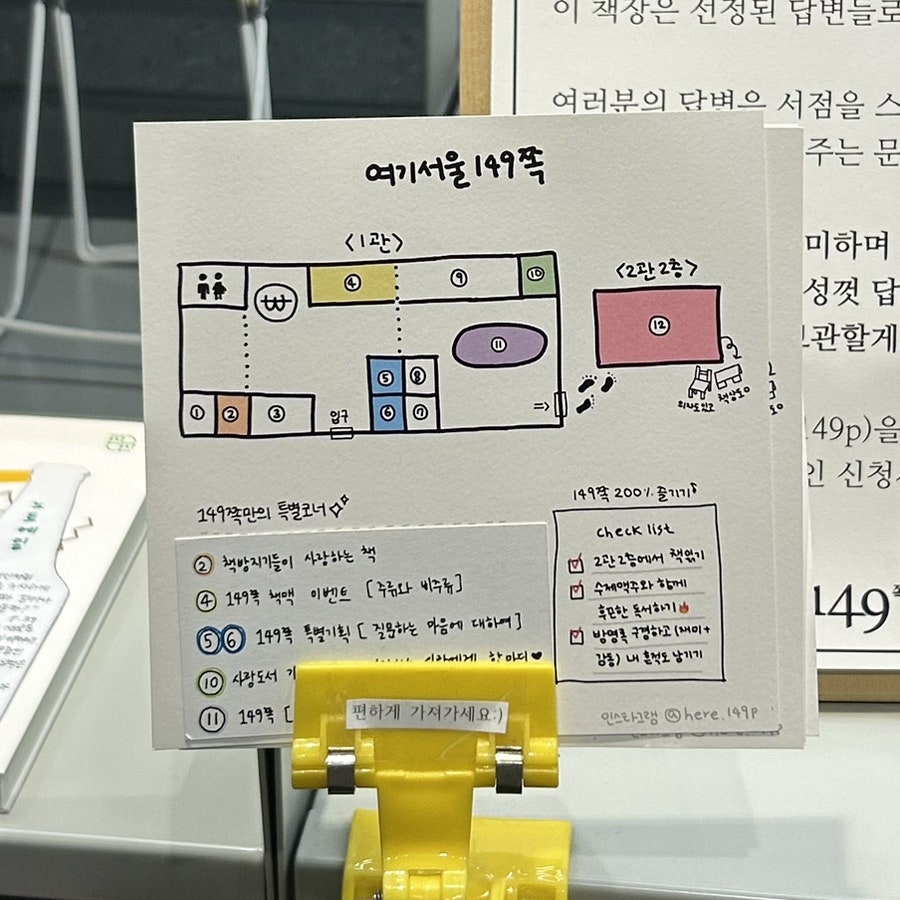 이 책장은 선정된 답변들로
여러분의 답변은 서점을 스
주는 문
미하며
성껏 답
관할게
149p)을
인 신청
149쪽
여기서울149쪽
<1관>
④
⑨
⑩
₩
⑪
⑤
⑧
①
②
③
⑥
⑦
입구
=>
<2관2층>
⑫
의자도있고
책상도o
149쪽만의 특별코너
② 책방지기들이 사랑하는 책
④ 149쪽 책맥 이벤트 [주류와 비주류]
⑤⑥ 149쪽 특별기획 [질문하는 마음에 대하여]
⑩ 사랑도서 한마디♥
⑪ 149쪽 [
149쪽 200% 즐기기
check list
2관2층에서 책읽기
수제맥주와 함께
후끈한 독서하기🔥
방명록 구경하고 (재미+
감동) 내 흔적도 남기기
인스타그램 @here.149p
편하게 가져가세요:)